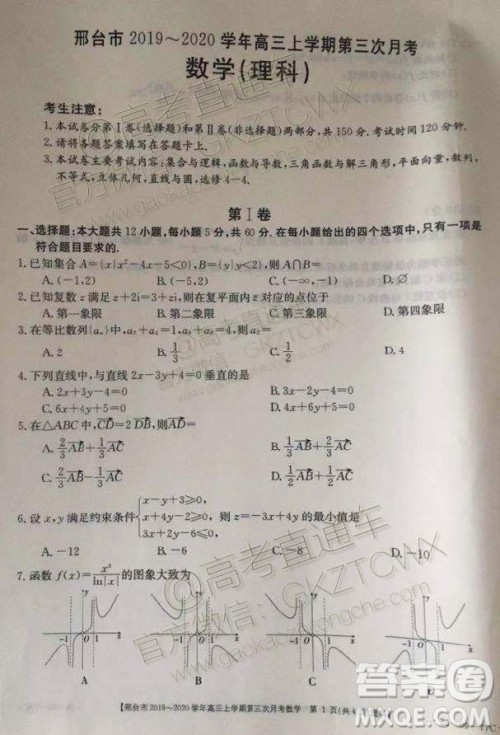 邢台市 2019～2020 学年高三上学期第三次月考
数学(理科)
考生注意:
1. 本试卷分第Ⅰ卷(选择题)和第Ⅱ卷(非选择题)两部分,共 150 分。考试时间 120 分钟。
2. 请将各题答案填写在答题卡上。
3. 本试卷主要考试内容:集合与逻辑,函数与导数,三角函数与解三角形,平面向量,数列,
不等式,立体几何,直线与圆,选修 4-4.
第Ⅰ卷
一、选择题:本大题共 12 小题,每小题 5 分,共 60 分.在每小题给出的四个选项中,只有一项是
符合题目要求的.
1. 已知集合 A={x|x²-4x-5<0},B={y|y<2},则 A∩B=
A. (-1,2) B. (-5,2) C. (-∞,-1) D. ∅
2. 已知复数 z 满足 z+2i=3+zi,则在复平面内 z 对应的点位于
A. 第一象限 B. 第二象限 C. 第三象限 D. 第四象限
3. 在等比数列{aₙ}中,a₂+a₄=1,a₆+a₈=4,则 a₂=
A. 2 B. 1/3 C. 1/2 D. 4
4. 下列直线中,与直线 2x-3y+4=0 垂直的是
A. 2x+3y-4=0 B. 4x-6y+8=0
C. 6x+4y+5=0 D. 6x-4y-7=0
5. 在△ABC 中,CD=2DB,则AD=
A. 2/3 AB+1/3 AC B. 1/3 AB+2/3 AC
C. 2/3 AB-1/3 AC D. 1/3 AB-2/3 AC
6. 设 x,y 满足约束条件 { x-y+3≥0, x+y≥0, x≤2, 则 z=-3x+4y 的最小值是
A. -12 C. -8 D. -10
7. 函数 f(x)=x³/ln|x| 的图象大致为
A B C D
【邢台市 2019～2020 学年高三上学期第三次月考数学 第 1 页(共 4
@高考直通车
官方微信:GKZTCWX
答案圈
MXQE.COM